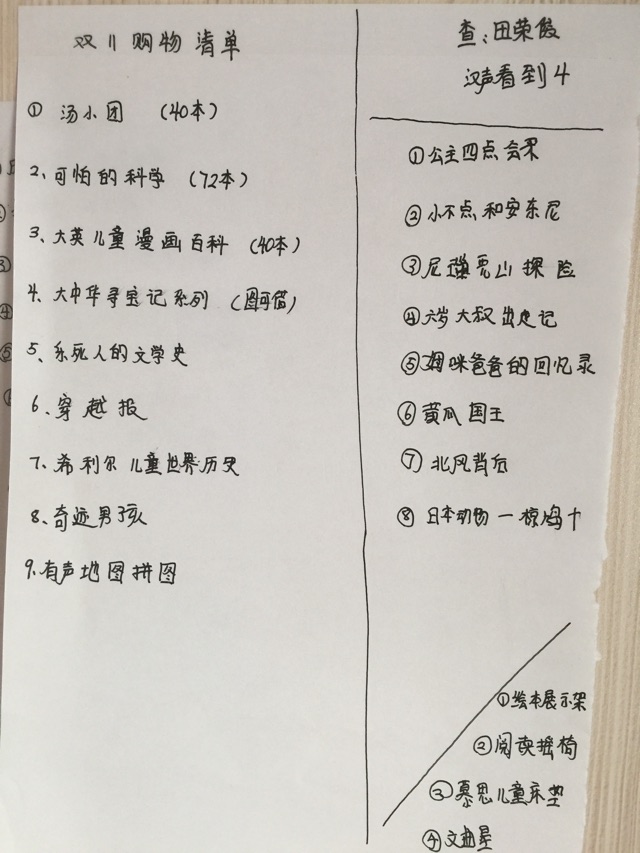 双11购物清单
① 汤小团 (40本)
2、可怕的科学 (72本)
3、大英儿童漫画百科 (40本)
4、大中华寻宝记系列 (图可借)
5、乐死人的文学史
6、穿越报
7、希利尔儿童世界历史
8、奇迹男孩
9、有声地图拼图
查:田荣俊
汉声看到4
①公主四点会来
②小不点和安东尼
③尼瑙克山探险
④六岁大叔出走记
⑤妈咪爸爸的回忆录
⑥黄瓜国王
⑦北风背后
⑧日本动物一
①绘本展示架
②阅读摇椅
③慕思儿童床垫
④文曲星